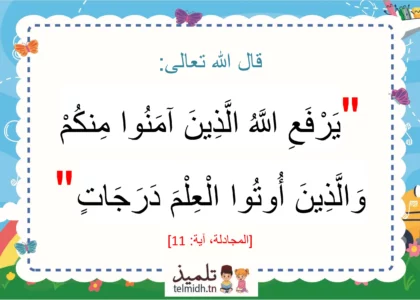 قال الله تعالى:
"يَرْفَعِ اللَّهُ الَّذِينَ آمَنُوا مِنكُمْ
وَالَّذِينَ أُوتُوا الْعِلْمَ دَرَجَاتٍ"
[المجادلة، آية: 11]
تلميذ
telmidh.tn